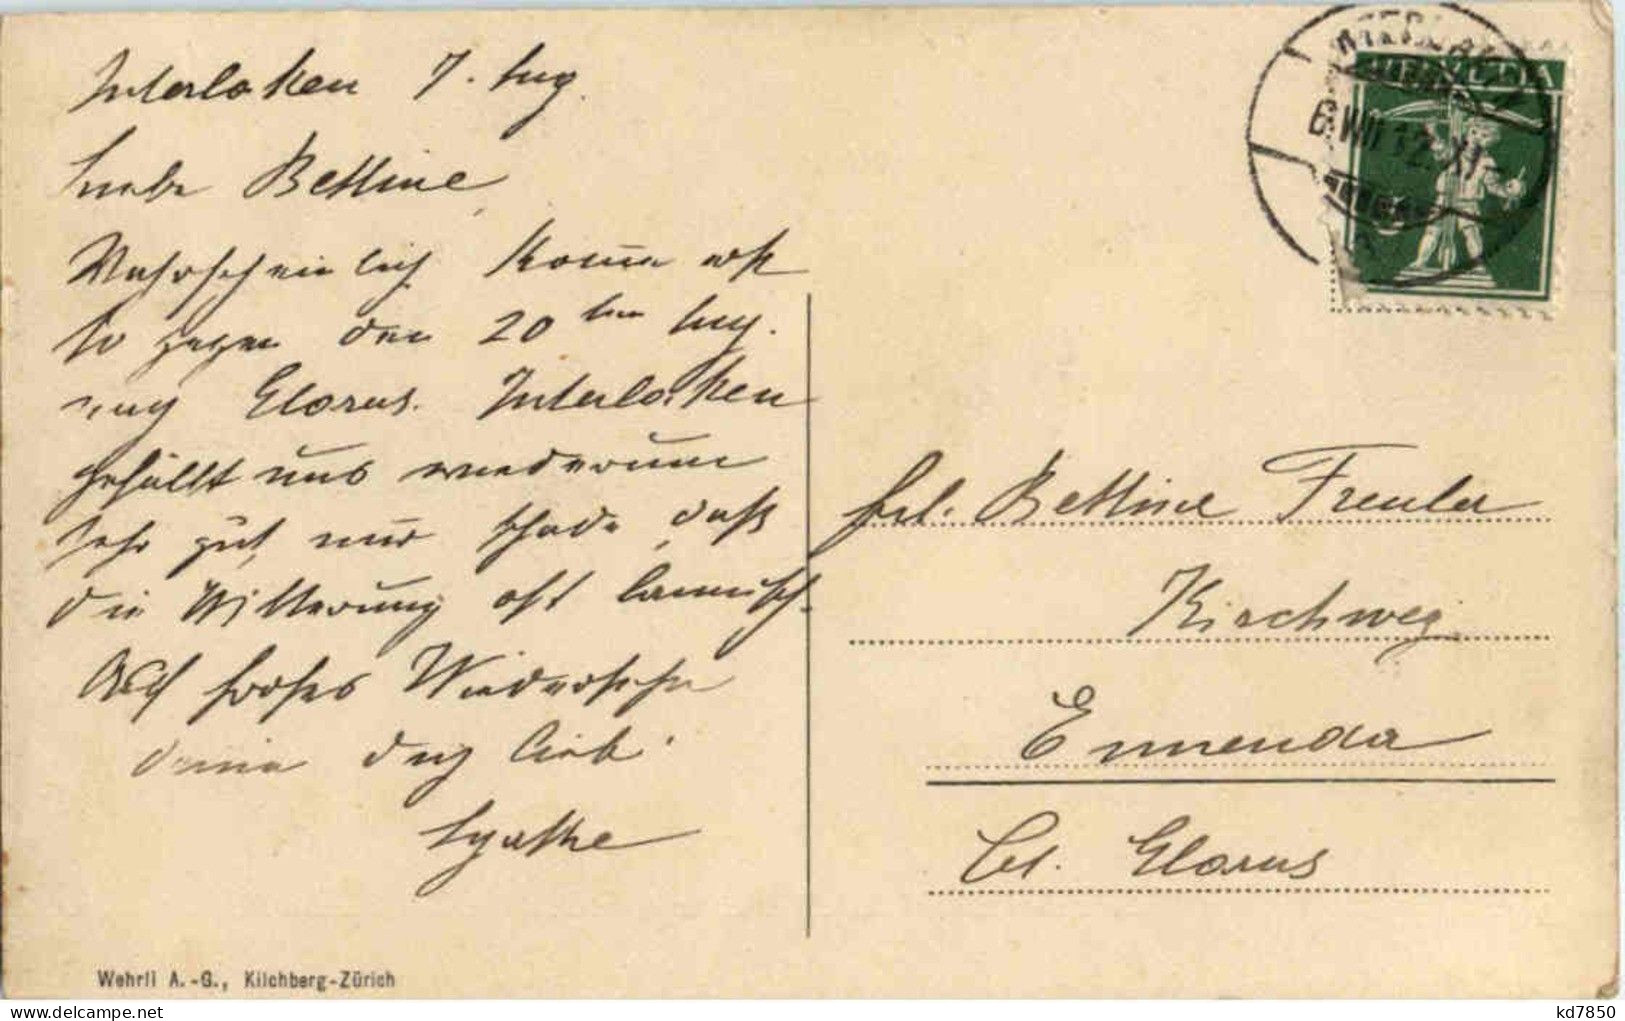 Interlaken 7. Aug.
Liebe Bettine,
Wahrscheinlich komme erst
so gegen den 20ten Aug.
nach Glarus. Interlaken
gefällt uns wiederum
sehr gut, nur schade, daß
die Witterung oft launisch.
Auf frohes Wiedersehn
deine dich lieb.
Agathe
Wehrli A.-G., Kilchberg-Zürich
HELVETIA
INTERLAKEN
6.VIII.12.XI
5
Frl. Bettine Freuler
Kirchweg
Ennenda
Ct. Glarus
kd7850